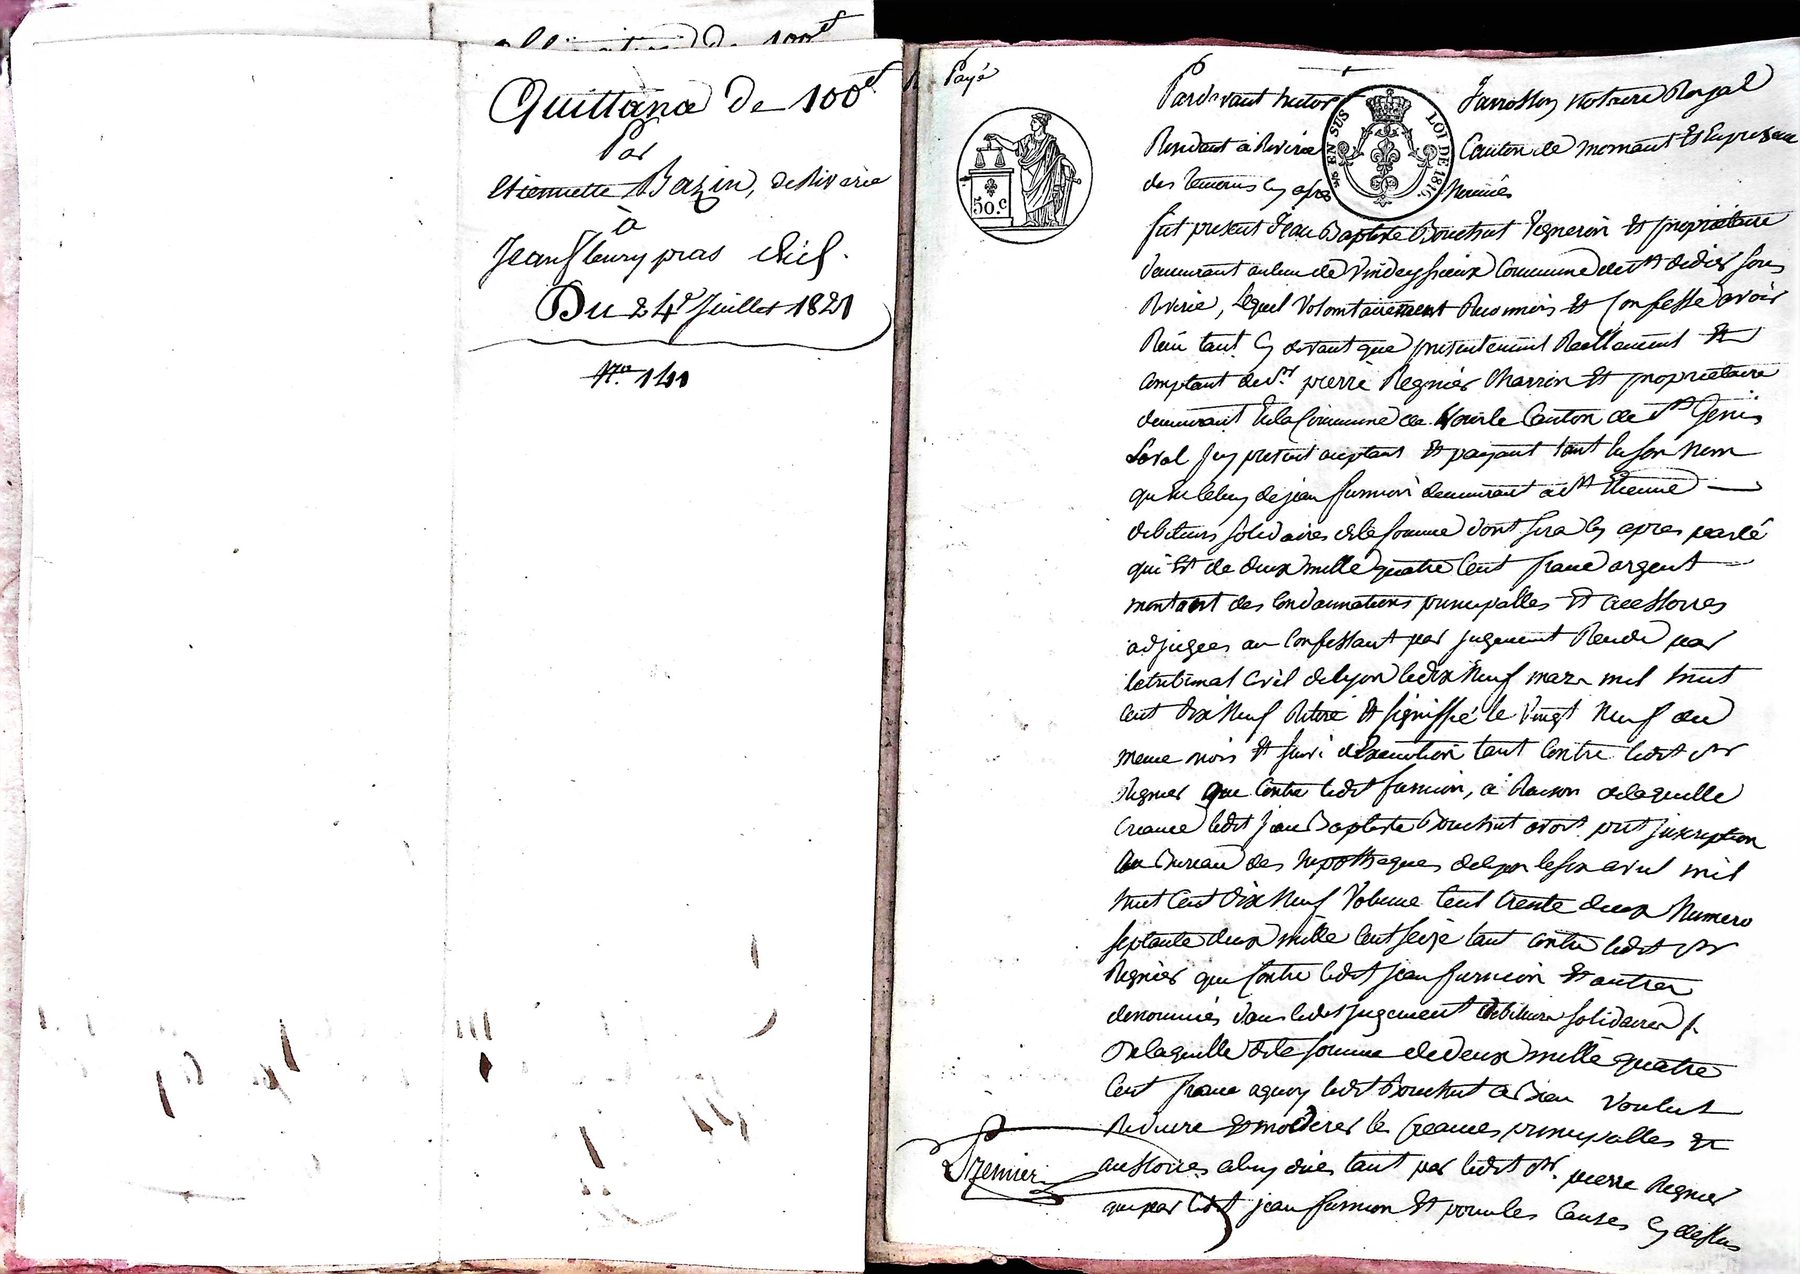 Obligation De 100d
Quittance De 100d.
Par
Etiennette Bazin, de Riverie
à
Jean Fleury pras
Du 24e Juillet 1821
N.ro 141
Payé
Pardevant Me Victor Jarrosson Notaire Royal
Residant à Riverie Canton de Mornant Et En presence
des temoins Cy apres Nommés
EN SUS
LOI DE 1816.
50.c
fut present Jean Baptiste Bouchut Vigneron Et propriétaire
demeurant au lieu de Vindeyssieux Commune de St didier sous
Riverie, Lequel Volontairement Reconnois Et Confesse avoir
Reçu tant Cy devant que presentement Reellement Et
Comptant de Sr. pierre Regnier Charron Et propriétaire
demeurant En la Commune de Vourle Canton de St Genis
Laval Icy present acceptant Et payant tant En son Nom
qu'En Celuy de jean furnion demeurant à St Etienne
debiteurs solidaires de la somme dont sera Cy apres parlé
qui Est de deux mille quatre Cent franc argent
montant des Condamnations principalles Et accessoires
adjugées au Confessant par jugement Rendu par
le tribunal Civil de Lyon le dix Neuf mars mil huit
Cent dix Neuf Et signiffié le Vingt Neuf du
meme mois Et suivi d'Execution tant Contre ledit Sr
Regnier que Contre ledit furnion, à Raison de laquelle
Creance ledit Jean Baptiste Bouchut avoit prit Inscription
au Bureau des hypotheques de Lyon le six avril mil
huit Cent dix Neuf Volume Cent trente deux Numero
septante deux mille Cent seize tant Contre ledit Sr
Regnier que Contre ledit jean furnion Et autres
denommés dans ledit jugement debiteurs solidaires
De laquelle dite somme de deux mille quatre
Cent franc aquoy ledit Bouchut à Bien Voulut
Reduire Et moderer les Creances principalles Et
accessoires a luy dues tant par ledit Sr. pierre Regnier
que par ledit jean furnion Et pour les Causes Cy dessus
Premier